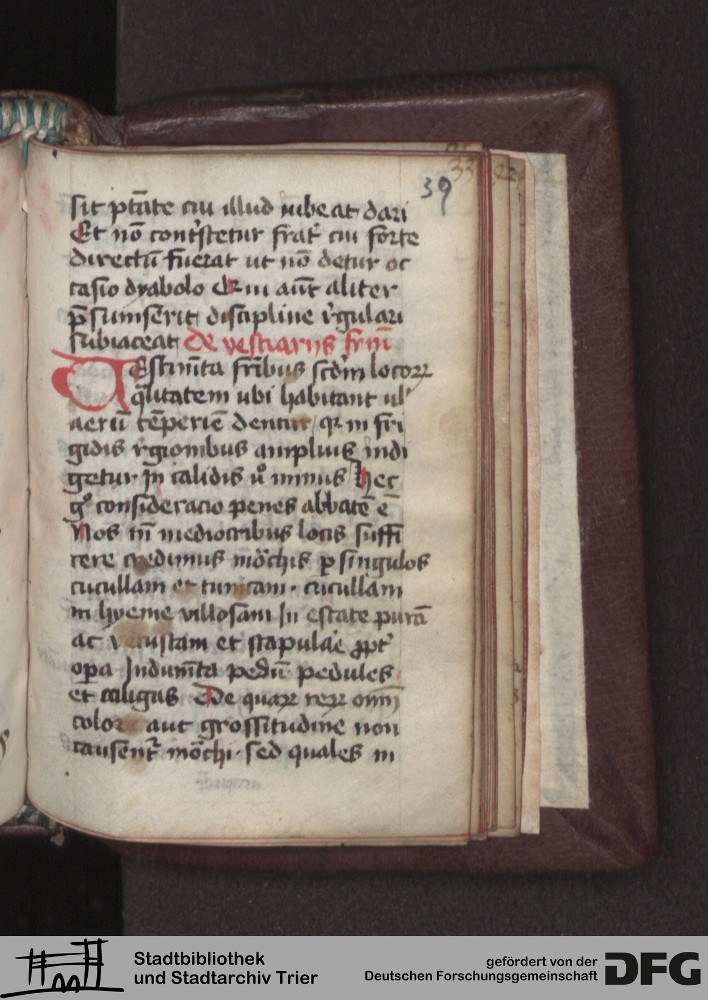 39
33
sit ptāte cui illud iubeat dari
Et nō contͥstetur frat̕ cui forte
directū fuerat ut nō detur oc
casio dyabolo Qui aūt aliter
p̄sumserit discipline r̕gulari
subiaceat De vestiariis frm̄
Vestim̄ta frībus scd̄m locoꝝ
q̄litatem ubi habitant ul̕
aerū tēperiē dentur qꝛ in fri
gidis r̕gionibus amplius indi
getur In calidis uͦ minus Hec
gͦ consideracio penes abbatē ē
Nos tn̄ mediocribus locis suffi
cere credimus mōchis p singulos
cucullam et tunicam · cucullam
in hyeme villosam In estate purā
ac vetustam et scapulae ꝓpt̕
opa Indum̄ta pedū pedules
et caligas De quaꝝ reꝝ omī
colore aut grossitudine non
causent̕ mōchi · sed quales in
Stadtbibliothek
und Stadtarchiv Trier
gefördert von der
Deutschen Forschungsgemeinschaft
DFG